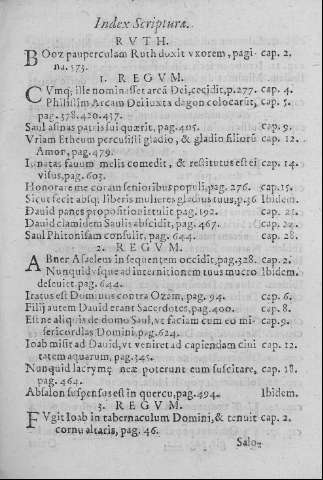 Index Scripturæ.
RVTH.
BOoz pauperculam Ruth duxit vxorem, pagi- cap. 2.
na. 573.
1. REGVM.
CVmq; ille nominasset arcã Dei, cecidit, p. 277. cap. 4.
Philistim Arcam Dei iuxta dagon colocarũt, cap. 5.
pag. 378. 420. 437.
Saul asinas patris sui quærit. pag. 405. cap. 9.
Vriam Etheum percussisti gladio, & gladio filiorũ cap. 12.
Amor, pag. 479.
Ionatas fauum melis comedit, & restitutus est ei cap. 14.
visus, pag. 603.
Honorare me coram senioribus populi, pag. 276. cap. 15.
Sicut fecit absq; liberis mulieres gladius tuus, p. 36 Ibidem.
Dauid panes propositionis tulit pag. 192. cap. 21.
Dauid clamidem Saulis abscidit, pag. 467. cap. 24.
Saul Phitonissam consulit, pag. 644. cap. 28.
2. REGVM.
ABner Asaelem in sequentem occidit, pag. 328. cap. 2.
Nunquid vsque ad internitionem tuus mucro Ibidem.
deseuiet. pag. 644.
Iratus est Dominus contra Ozam, pag. 94. cap. 6.
Filij autem Dauid erant Sacerdotes, pag. 400. cap. 8.
Est ne aliquis de domo Saul, vt faciam cum eo mi- cap. 9.
sericordias Domini, pag. 624.
Ioab misit ad Dauid, vt veniret ad capiendam ciui cap. 12.
tatem aquarum, pag. 345.
Nunquid lacrymę neæ poterunt eum suscitare, cap. 18.
pag. 462.
Absalon suspensus est in quercu, pag. 494. Ibidem.
3. REGVM.
FVgit Ioab in tabernaculum Domini, & tenuit cap. 2.
cornu altaris, pag. 46.
Salo-